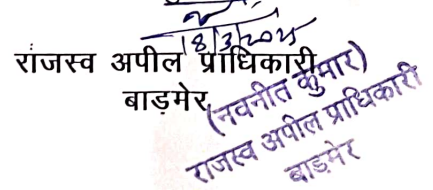 18/3/2025
राजस्व अपील प्राधिकारी
बाड़मेर
(नवनीत कुमार)
राजस्व अपील प्राधिकारी
बाड़मेर